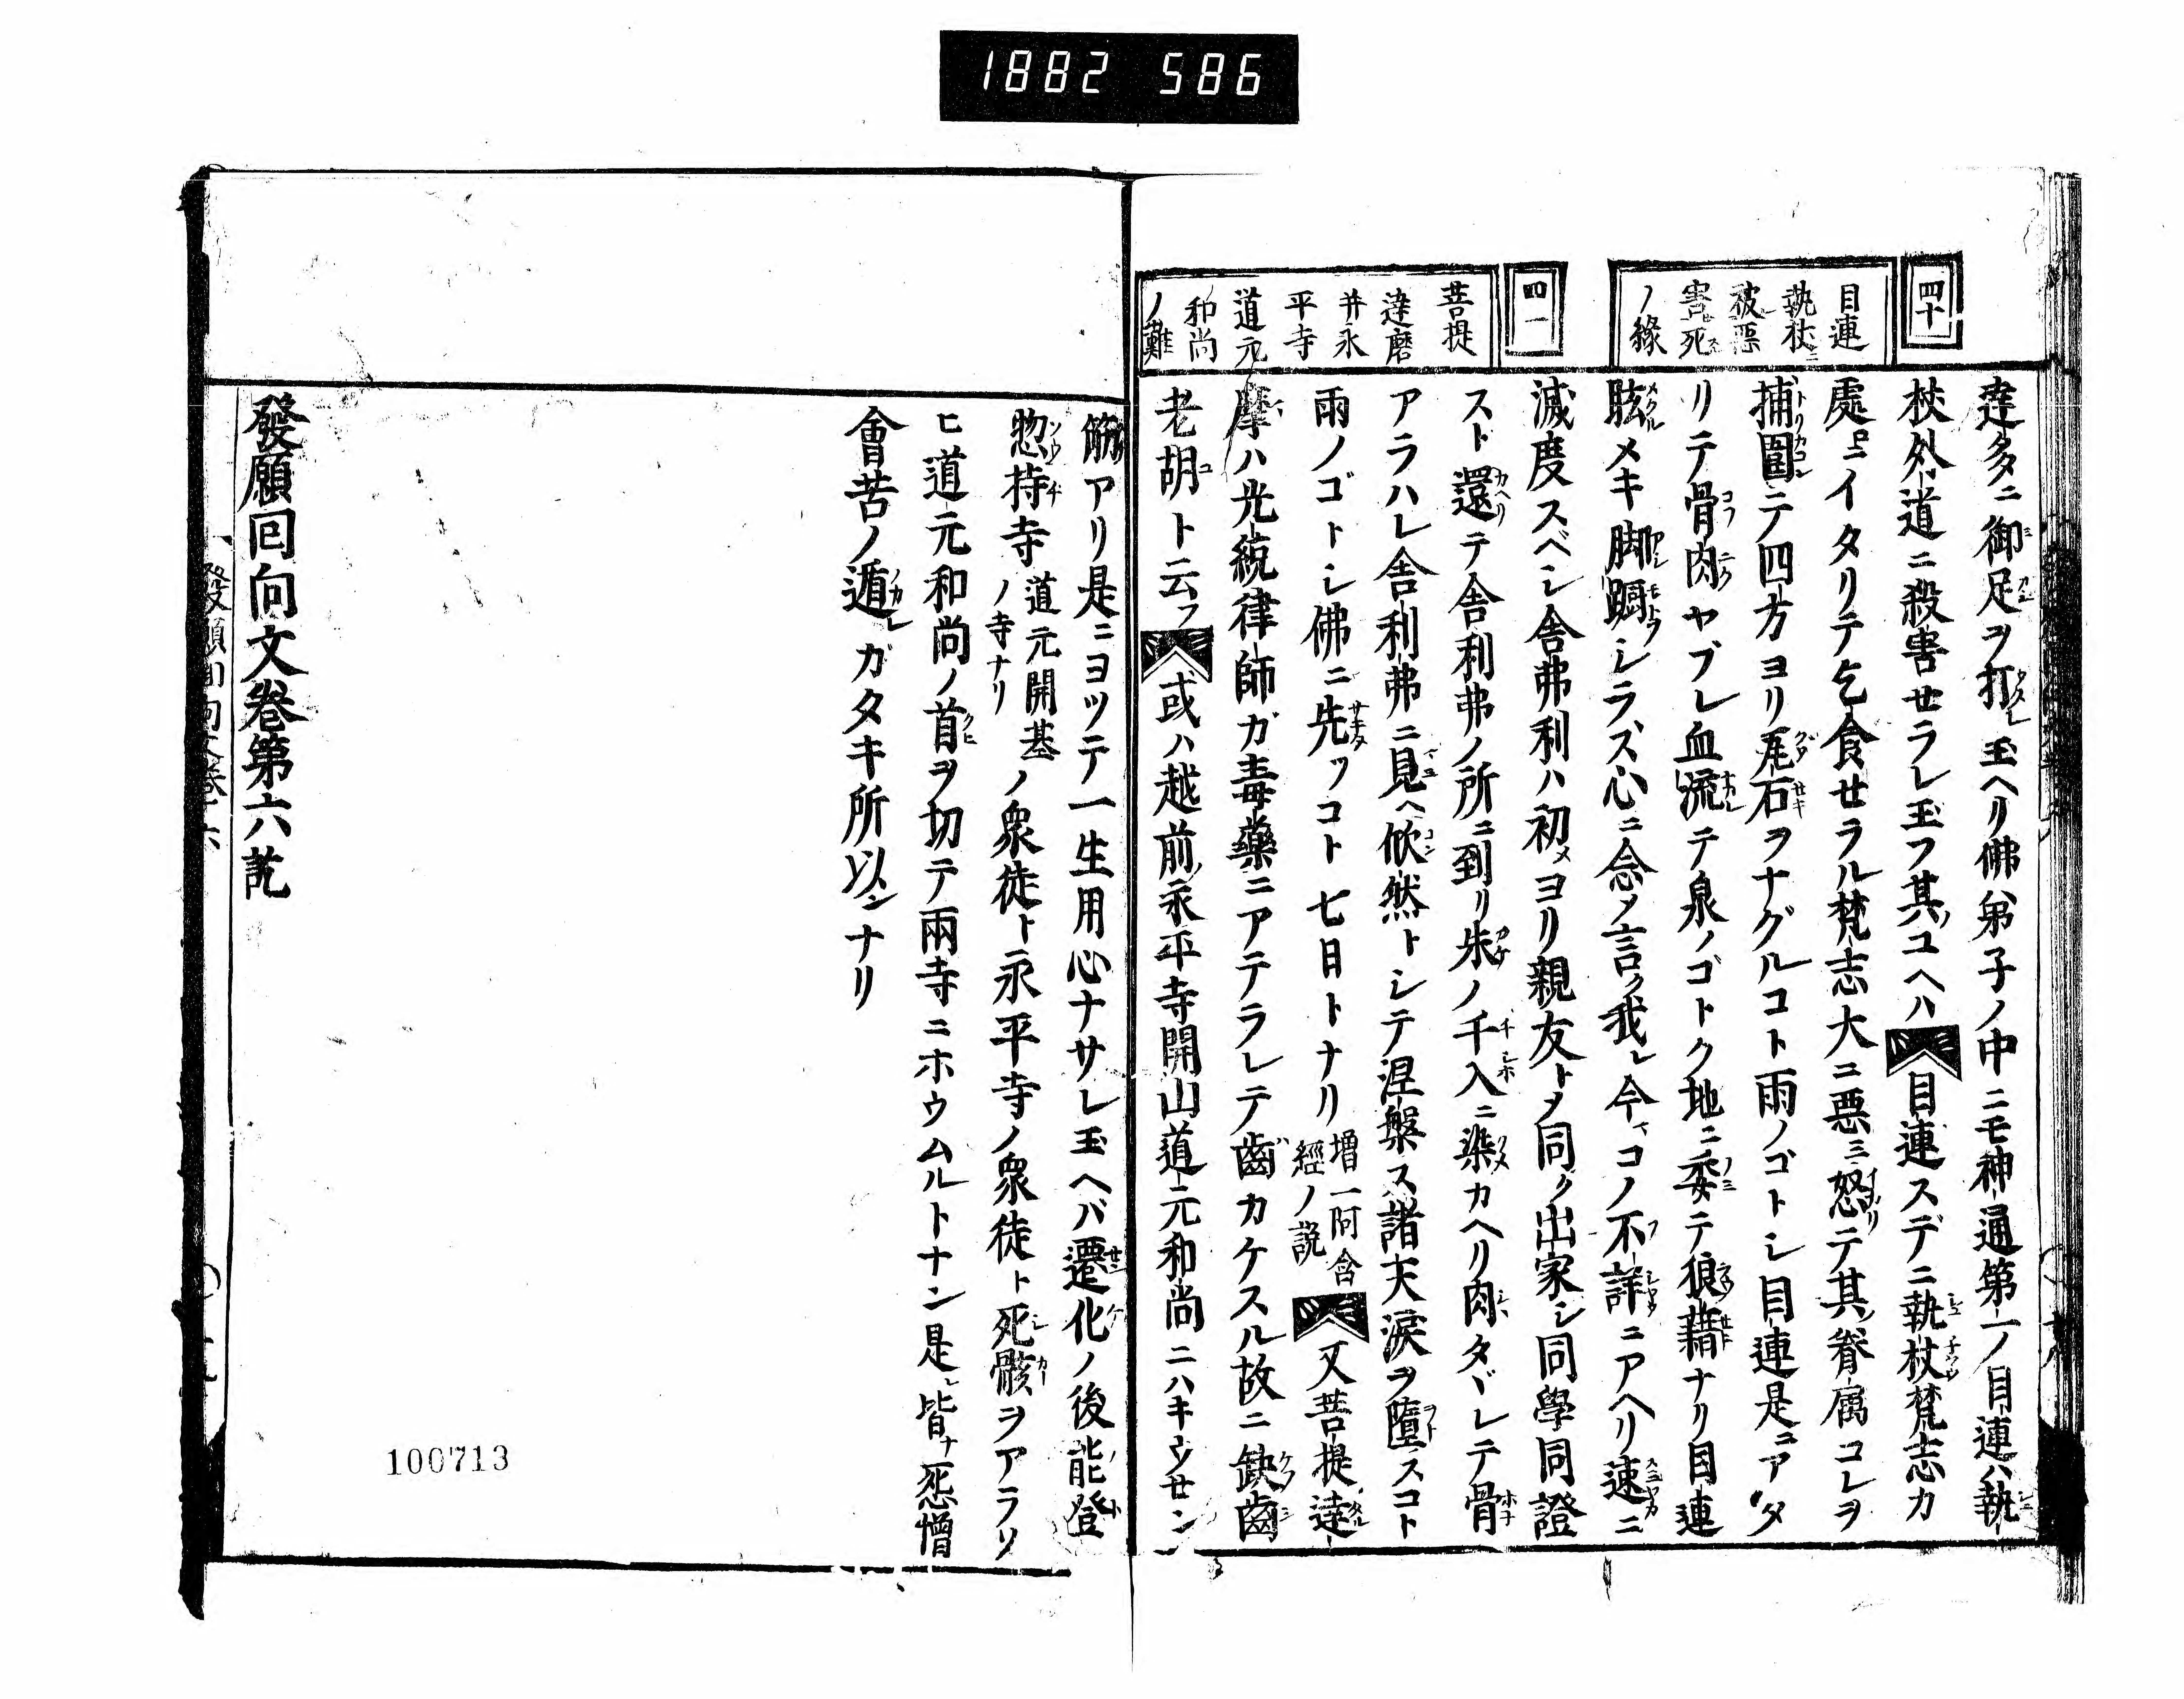 1882 586
四十
目連
執杖ニ
被悪
害死
ノ縁
四一
菩提
達磨
并永
平寺
道元
和尚
ノ難
達多ニ御足ヲ打レ玉ヘリ佛弟子ノ中ニモ神通第一ノ目連ハ執
杖外道ニ殺害セラレ玉フ其ユヘハ目連スデニ執杖梵志カ
處ニイタリテ乞食セラル梵志大ニ悪ミ怒テ其眷属コレヲ
捕圍テ四方ヨリ瓦石ヲナグルコト雨ノゴトシ目連是ニアタ
リテ骨肉ヤブレ血流テ泉ノゴトク地ニ委テ狼藉ナリ目連
眩メキ脚躅シラズ心ニ念ノ言ク我レ今マコノ不詳ニアヘリ速ニ
滅度スベシ舎弗利ハ初メヨリ親友トメ同ク出家シ同學同證
スト還テ舎利弗ノ所ニ到リ朱ノ千入ニ染カヘリ肉タヾレテ骨
アラハレ舎利弗ニ見ヘ欣然トシテ涅槃ス諸天涙ヲ墮スコト
雨ノゴトシ佛ニ先ツコト七日トナリ増一阿含經ノ説又菩提達
摩ハ光統律師ガ毒藥ニアテラレテ齒カケスル故ニ缺齒
老胡ト云フ或ハ越前永平寺開山道元和尚ニハキウセン
筋アリ是ニヨツテ一生用心ナサレ玉ヘバ遷化ノ後能登
惣持寺道元開基ノ寺ナリノ衆徒ト永平寺ノ衆徒ト死骸ヲアラソ
ヒ道元和尚ノ首ヲ切テ兩寺ニホウムルトナン是レ皆ナ怨憎
會苦ノ遁レガタキ所以ンナリ
發願回向文卷第六訖
100713